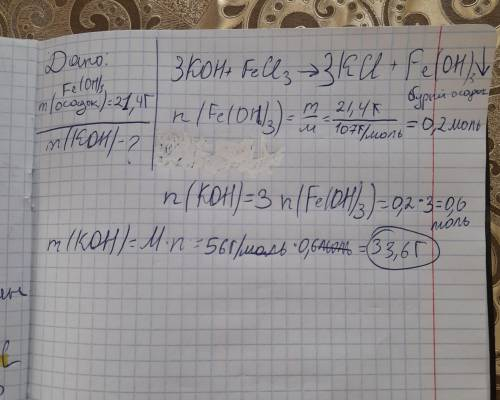 Дано:
m(осадок Fe(OH)₃)=21,4г
m(KOH)-?
3KOH+FeCl₃→3KCl+Fe(OH)₃↓
бурый осадок
n(Fe(OH)₃)=m/M=21,4г/107г/моль=0,2моль
n(KOH)=3n(Fe(OH)₃)=0,2·3=0,6
моль
m(KOH)=M·n=56г/моль·0,6моль=33,6г